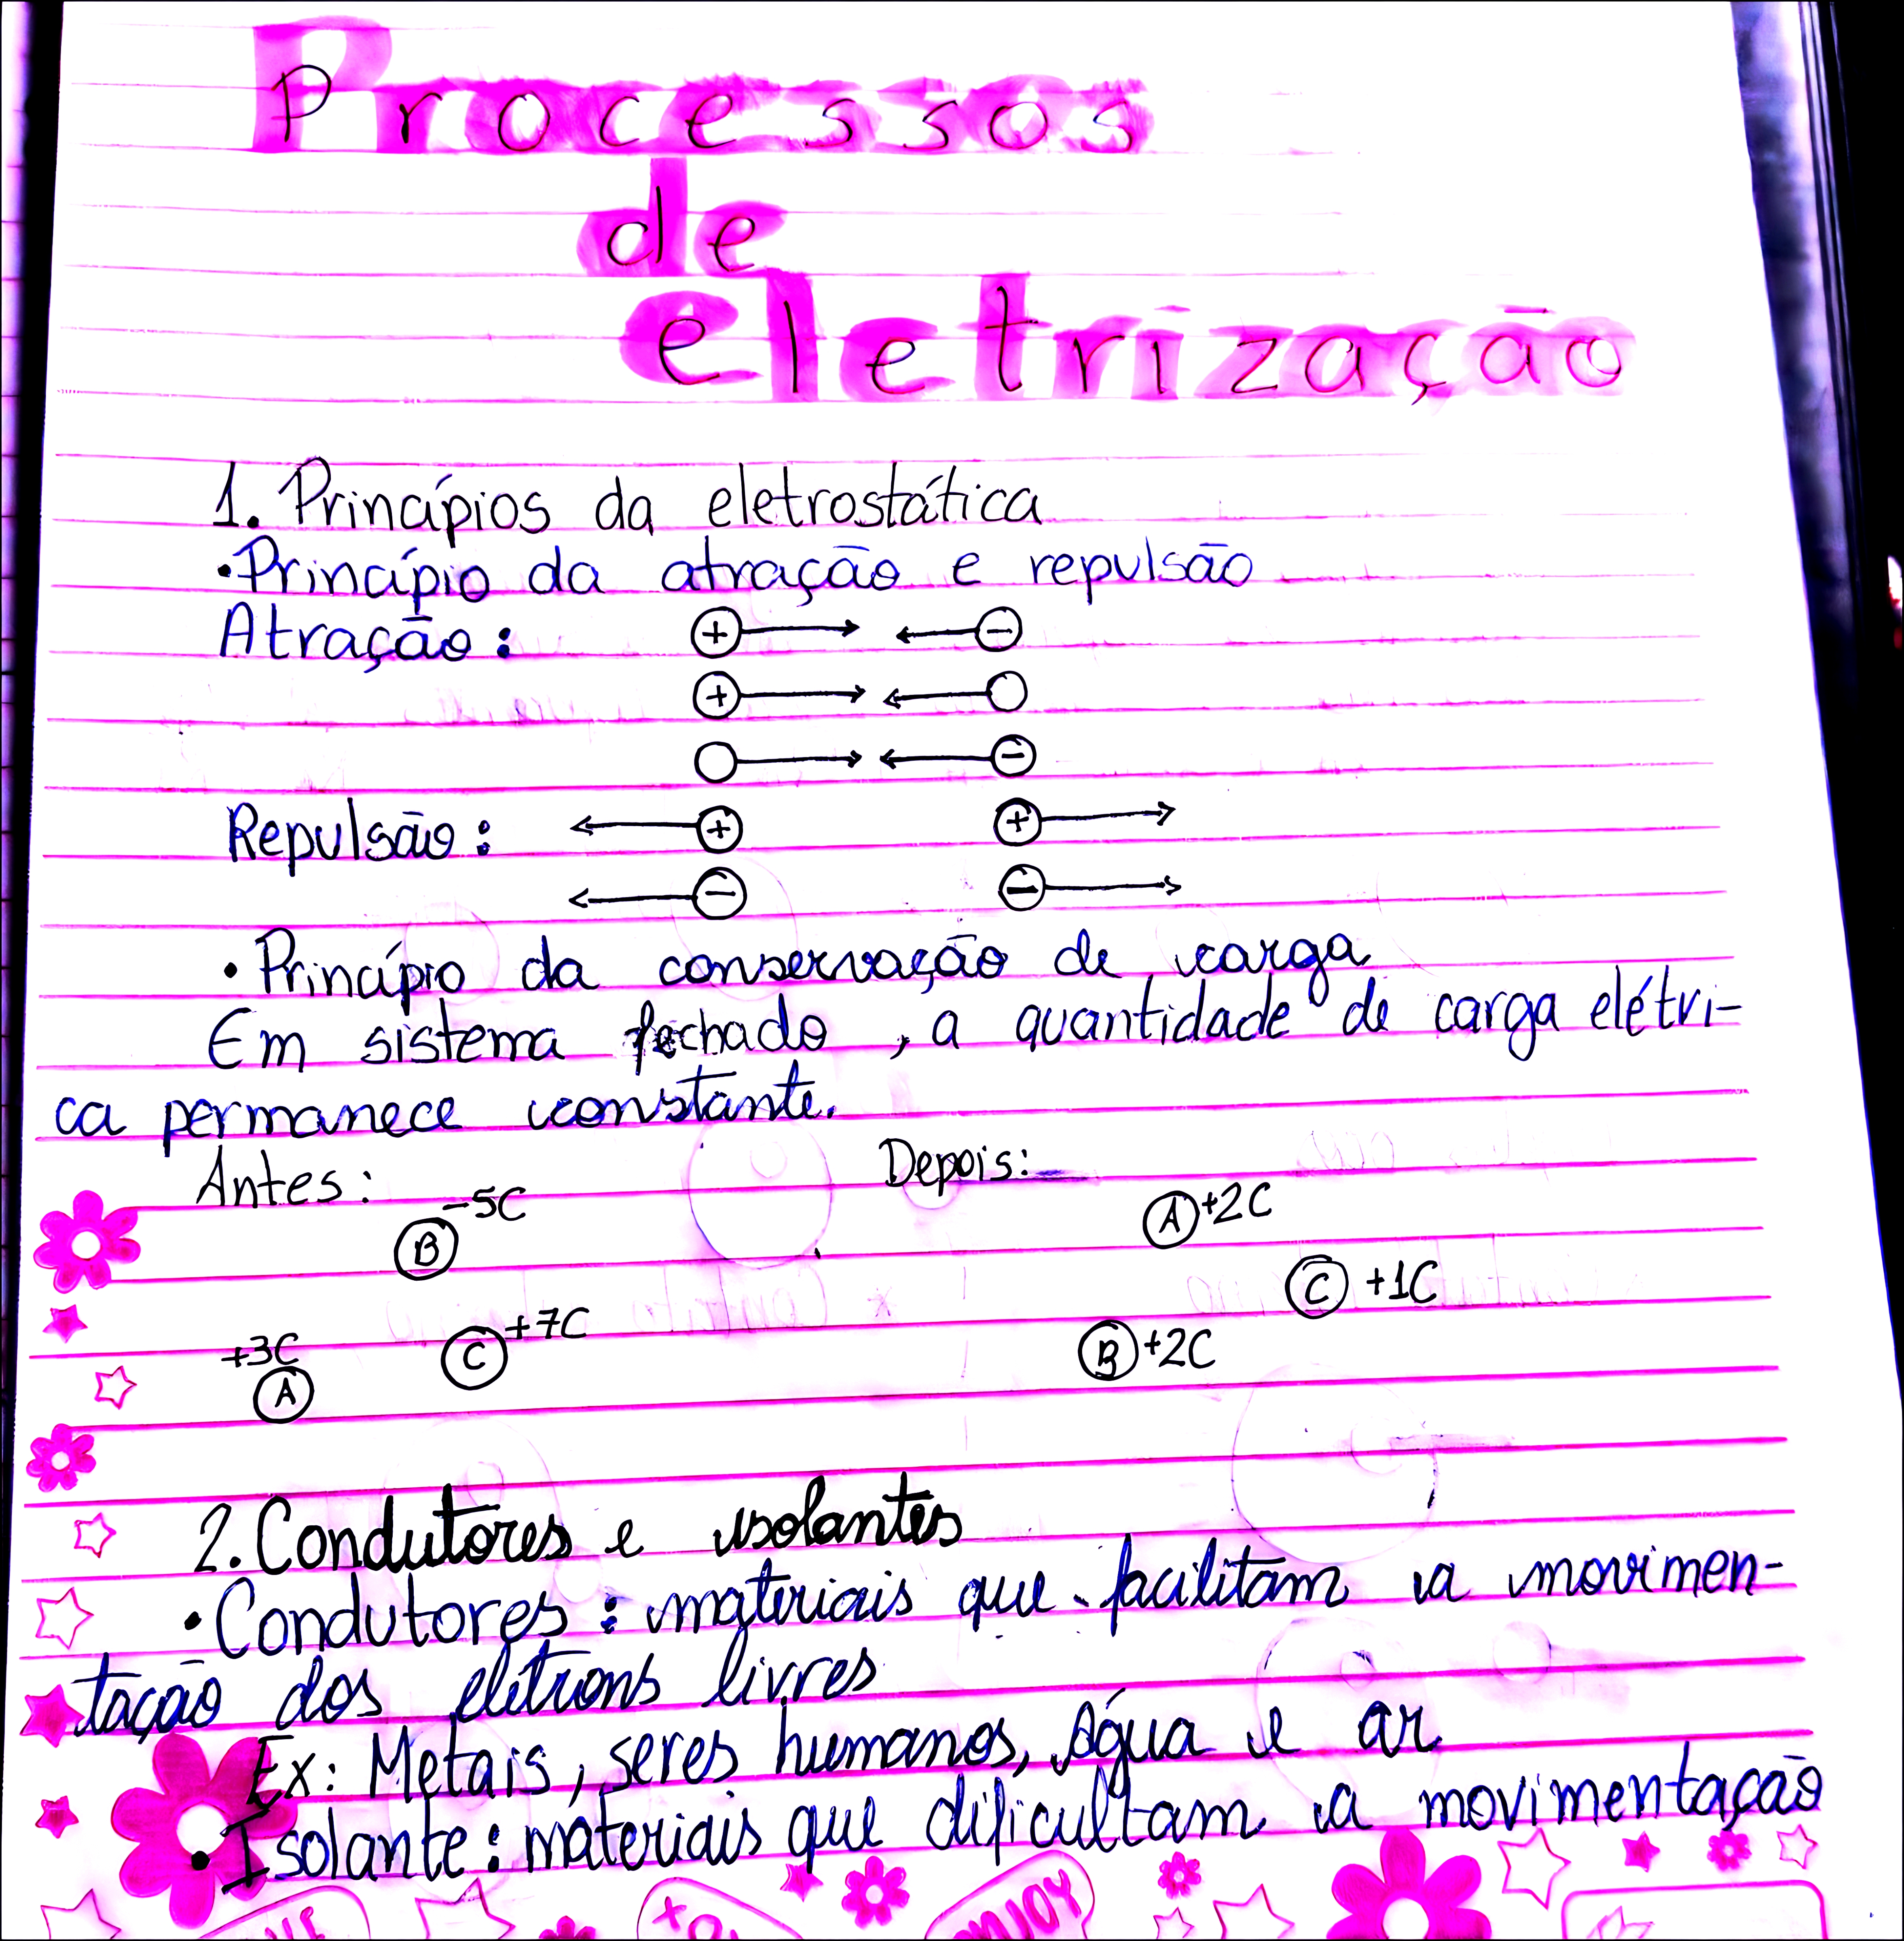 Processos
de
eletrização
1. Princípios da eletrostática
•Princípio da atração e repulsão
Atração: + −
+
−
Repulsão: + +
− −
• Princípio da conservação de carga
Em sistema fechado, a quantidade de carga elétri-
ca permanece constante.
Antes: Depois:
B -5C A +2C
C +1C
+3C A C +7C B +2C
2. Condutores e isolantes
• Condutores: materiais que facilitam a movimen-
tação dos elétrons livres
Ex: Metais, seres humanos, água e ar
• Isolante: materiais que dificultam a movimentação
ENJOY